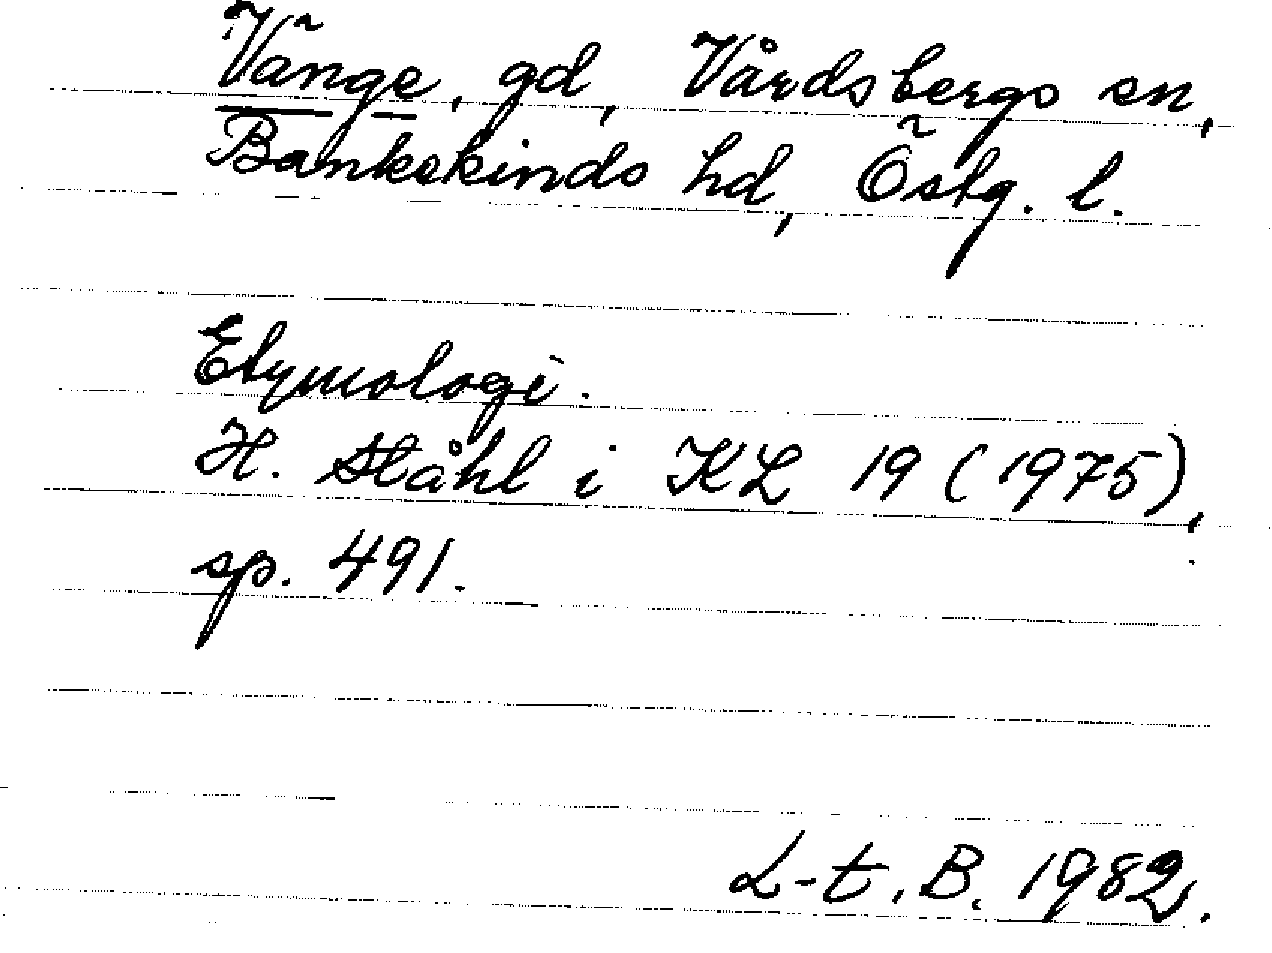 Vänge, gd, Vårdsbergs sn,
Bankekinds hd, Östg. l.
Etymologi.
H. Ståhl i KL 19 (1975),
sp. 491.
L-t. B. 1982.